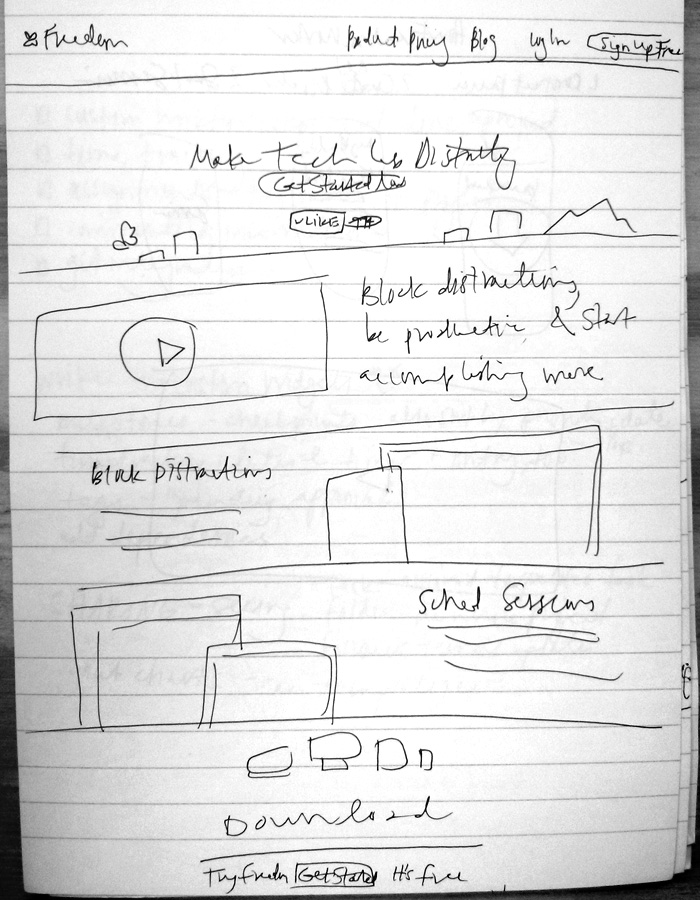 Freedom Product Pricing Blog Log In Sign Up Free
Make Tech Less Distracting
Get Started Now
LIKE
Block distractions,
be productive & start
accomplishing more
Block Distractions
Sched Sessions
Download
Try Freedom Get Started It's free